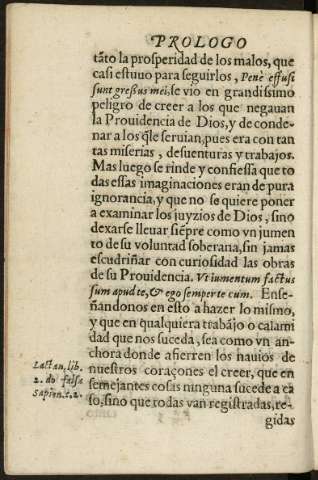 PROLOGO
tãto la prosperidad de los malos, que
casi estuuo para seguirlos, Penè effusi
sunt gressus mei; se vio en grandissimo
peligro de creer a los que negauan
la Prouidencia de Dios, y de conde-
nar a los q̃ le seruian, pues era con tan
tas miserias, desuenturas y trabajos.
Mas luego se rinde y confiessa que to
das essas imaginaciones eran de pura
ignorancia, y que no se quiere poner
a examinar los juyzios de Dios, sino
dexarse lleuar siẽpre como vn jumen
to de su voluntad soberana, sin jamas
escudriñar con curiosidad las obras
de su Prouidencia. Vt iumentum factus
sum apud te, & ego semper tecum. Ense-
ñandonos en esto a hazer lo mismo,
y que en qualquiera trabajo o calami
dad que nos suceda, sea como vn an-
chora donde afierren los nauios de
nuestros coraçones el creer, que en
semejantes cosas ninguna sucede a ca
so, sino que todas van registradas, re-
gidas
Lactan. lib.
2. de falsa
sapien. c. 2.